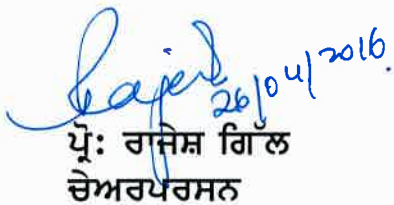 Rajesh
26/04/2016
ਪ੍ਰੋ: ਰਾਜੇਸ਼ ਗਿੱਲ
ਚੇਅਰਪਰਸਨ